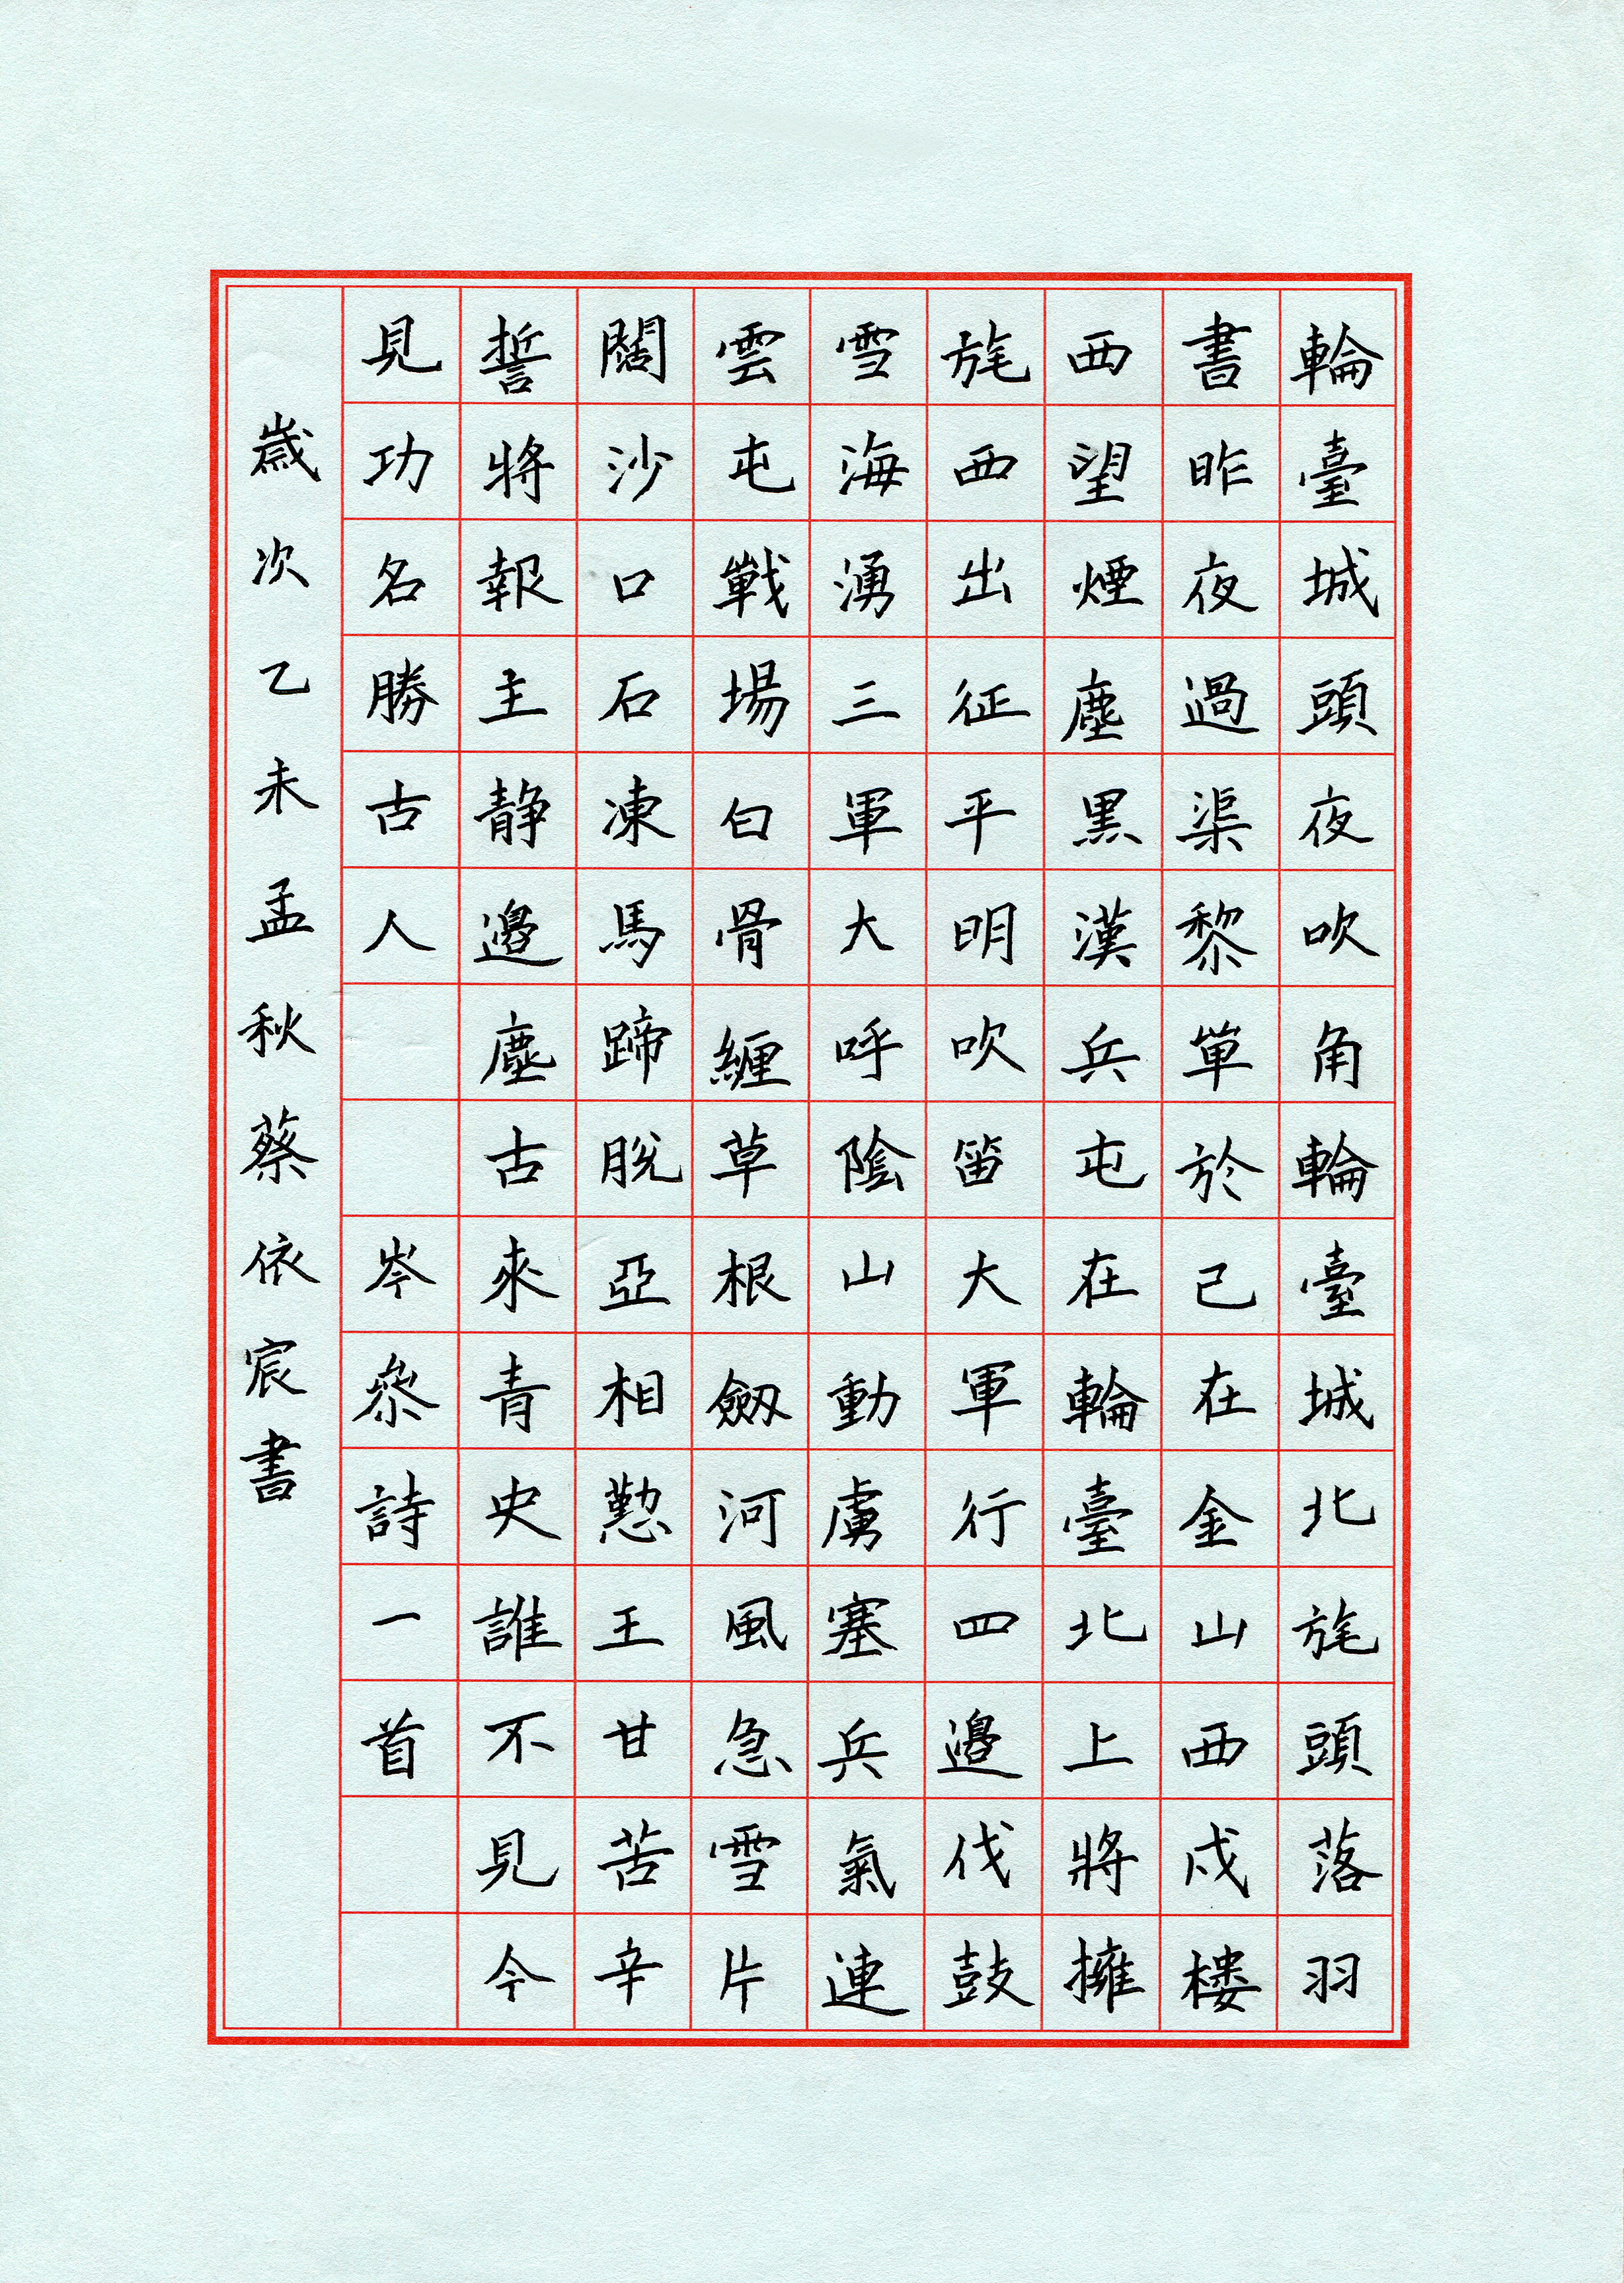 輪臺城頭夜吹角輪臺城北旄頭落羽
書昨夜過渠黎單於已在金山西戍楼
西望煙塵黑漢兵屯在輪臺北上將擁
旄西出征平明吹笛大軍行四邊伐鼓
雪海湧三軍大呼陰山動虜塞兵氣連
雲屯戰場白骨纏草根劒河風急雪片
闊沙口石凍馬蹄脫亞相懃王甘苦辛
誓將報主静邊塵古來青史誰不見今
見功名勝古人岑參詩一首
歲次乙未孟秋蔡依宸書